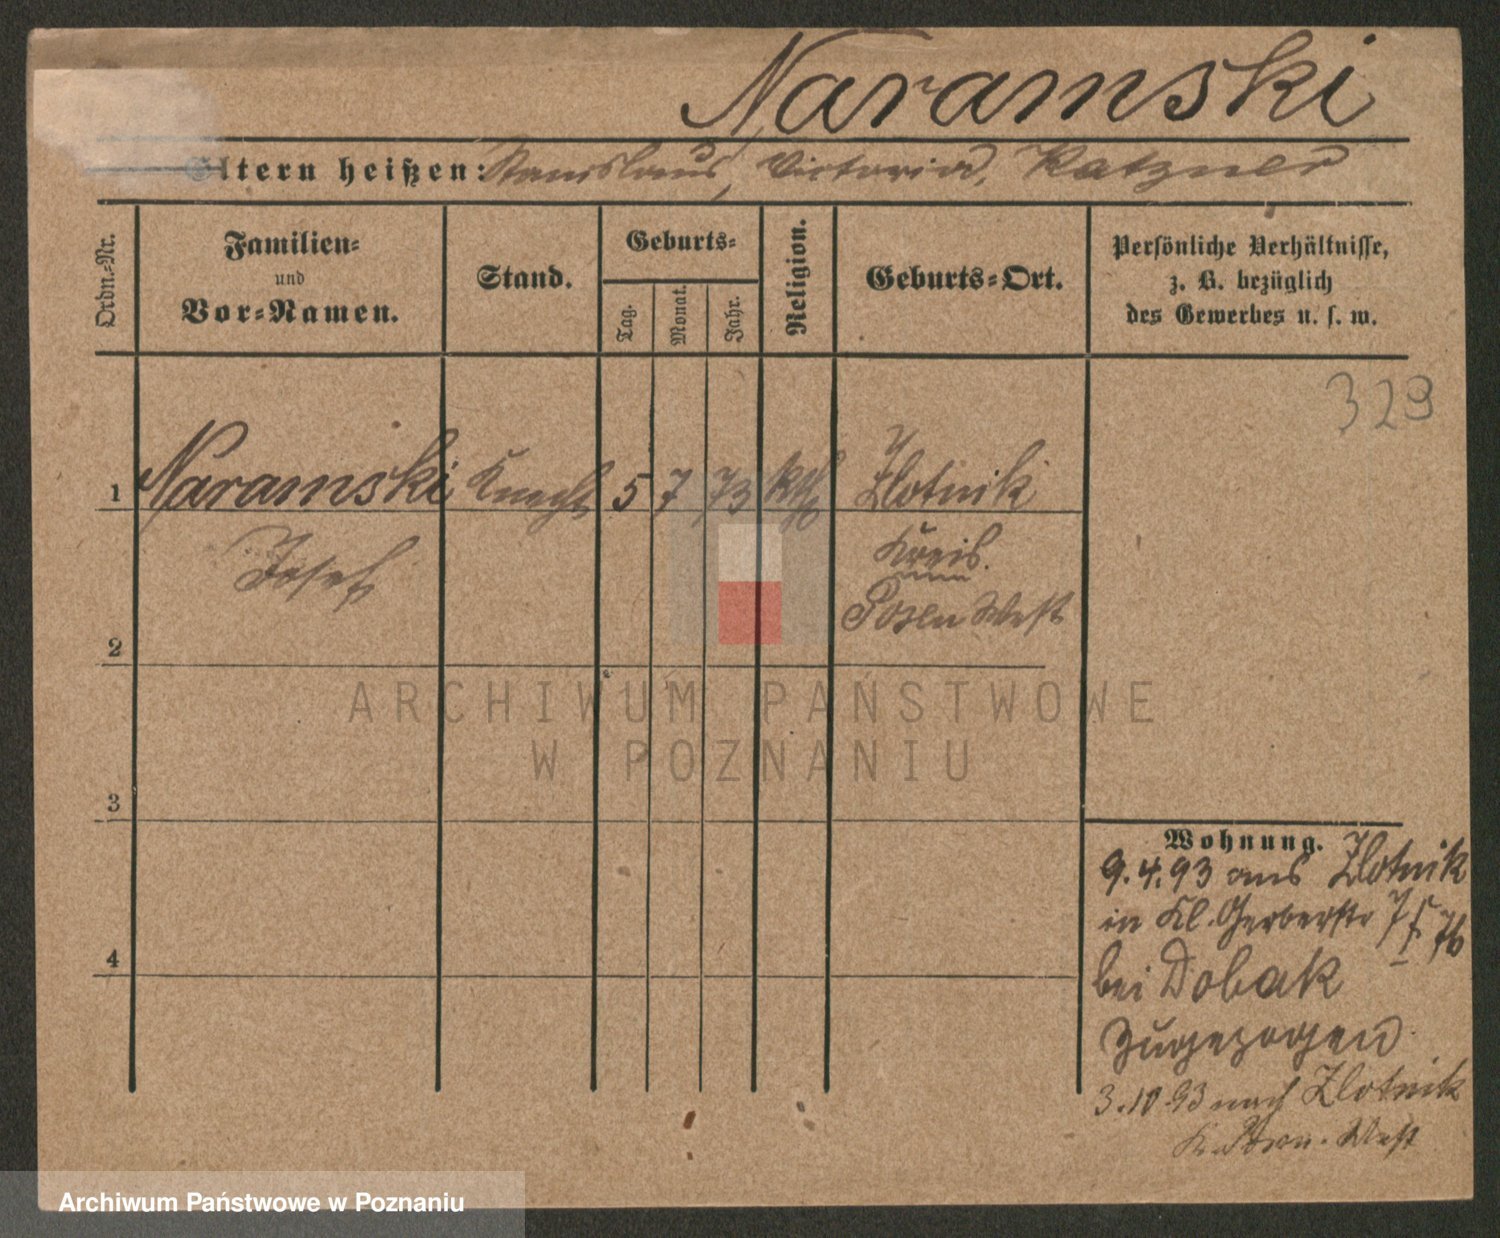 Naramski
Eltern heißen: Stanislaus, Victoria, Ratzner
Ordn.-Nr.
Familien-
und
Vor-Namen.
Stand.
Geburts-
Tag.
Monat.
Jahr.
Religion.
Geburts-Ort.
Persönliche Verhältnisse,
z. B. bezüglich
des Gewerbes u. s. w.
329
1 Naramski Knecht 5 7 73 kth Zlotnik
Josef
Kreis.
Posen West
2
ARCHIWUM PAŃSTWOWE
W POZNANIU
3
4
Wohnung.
9.4.93 aus Zlotnik
in Kl. Gerberstr
bei Dobak
zugezogen
3.10.93 nach Zlotnik
K. Posen-West
Archiwum Państwowe w Poznaniu